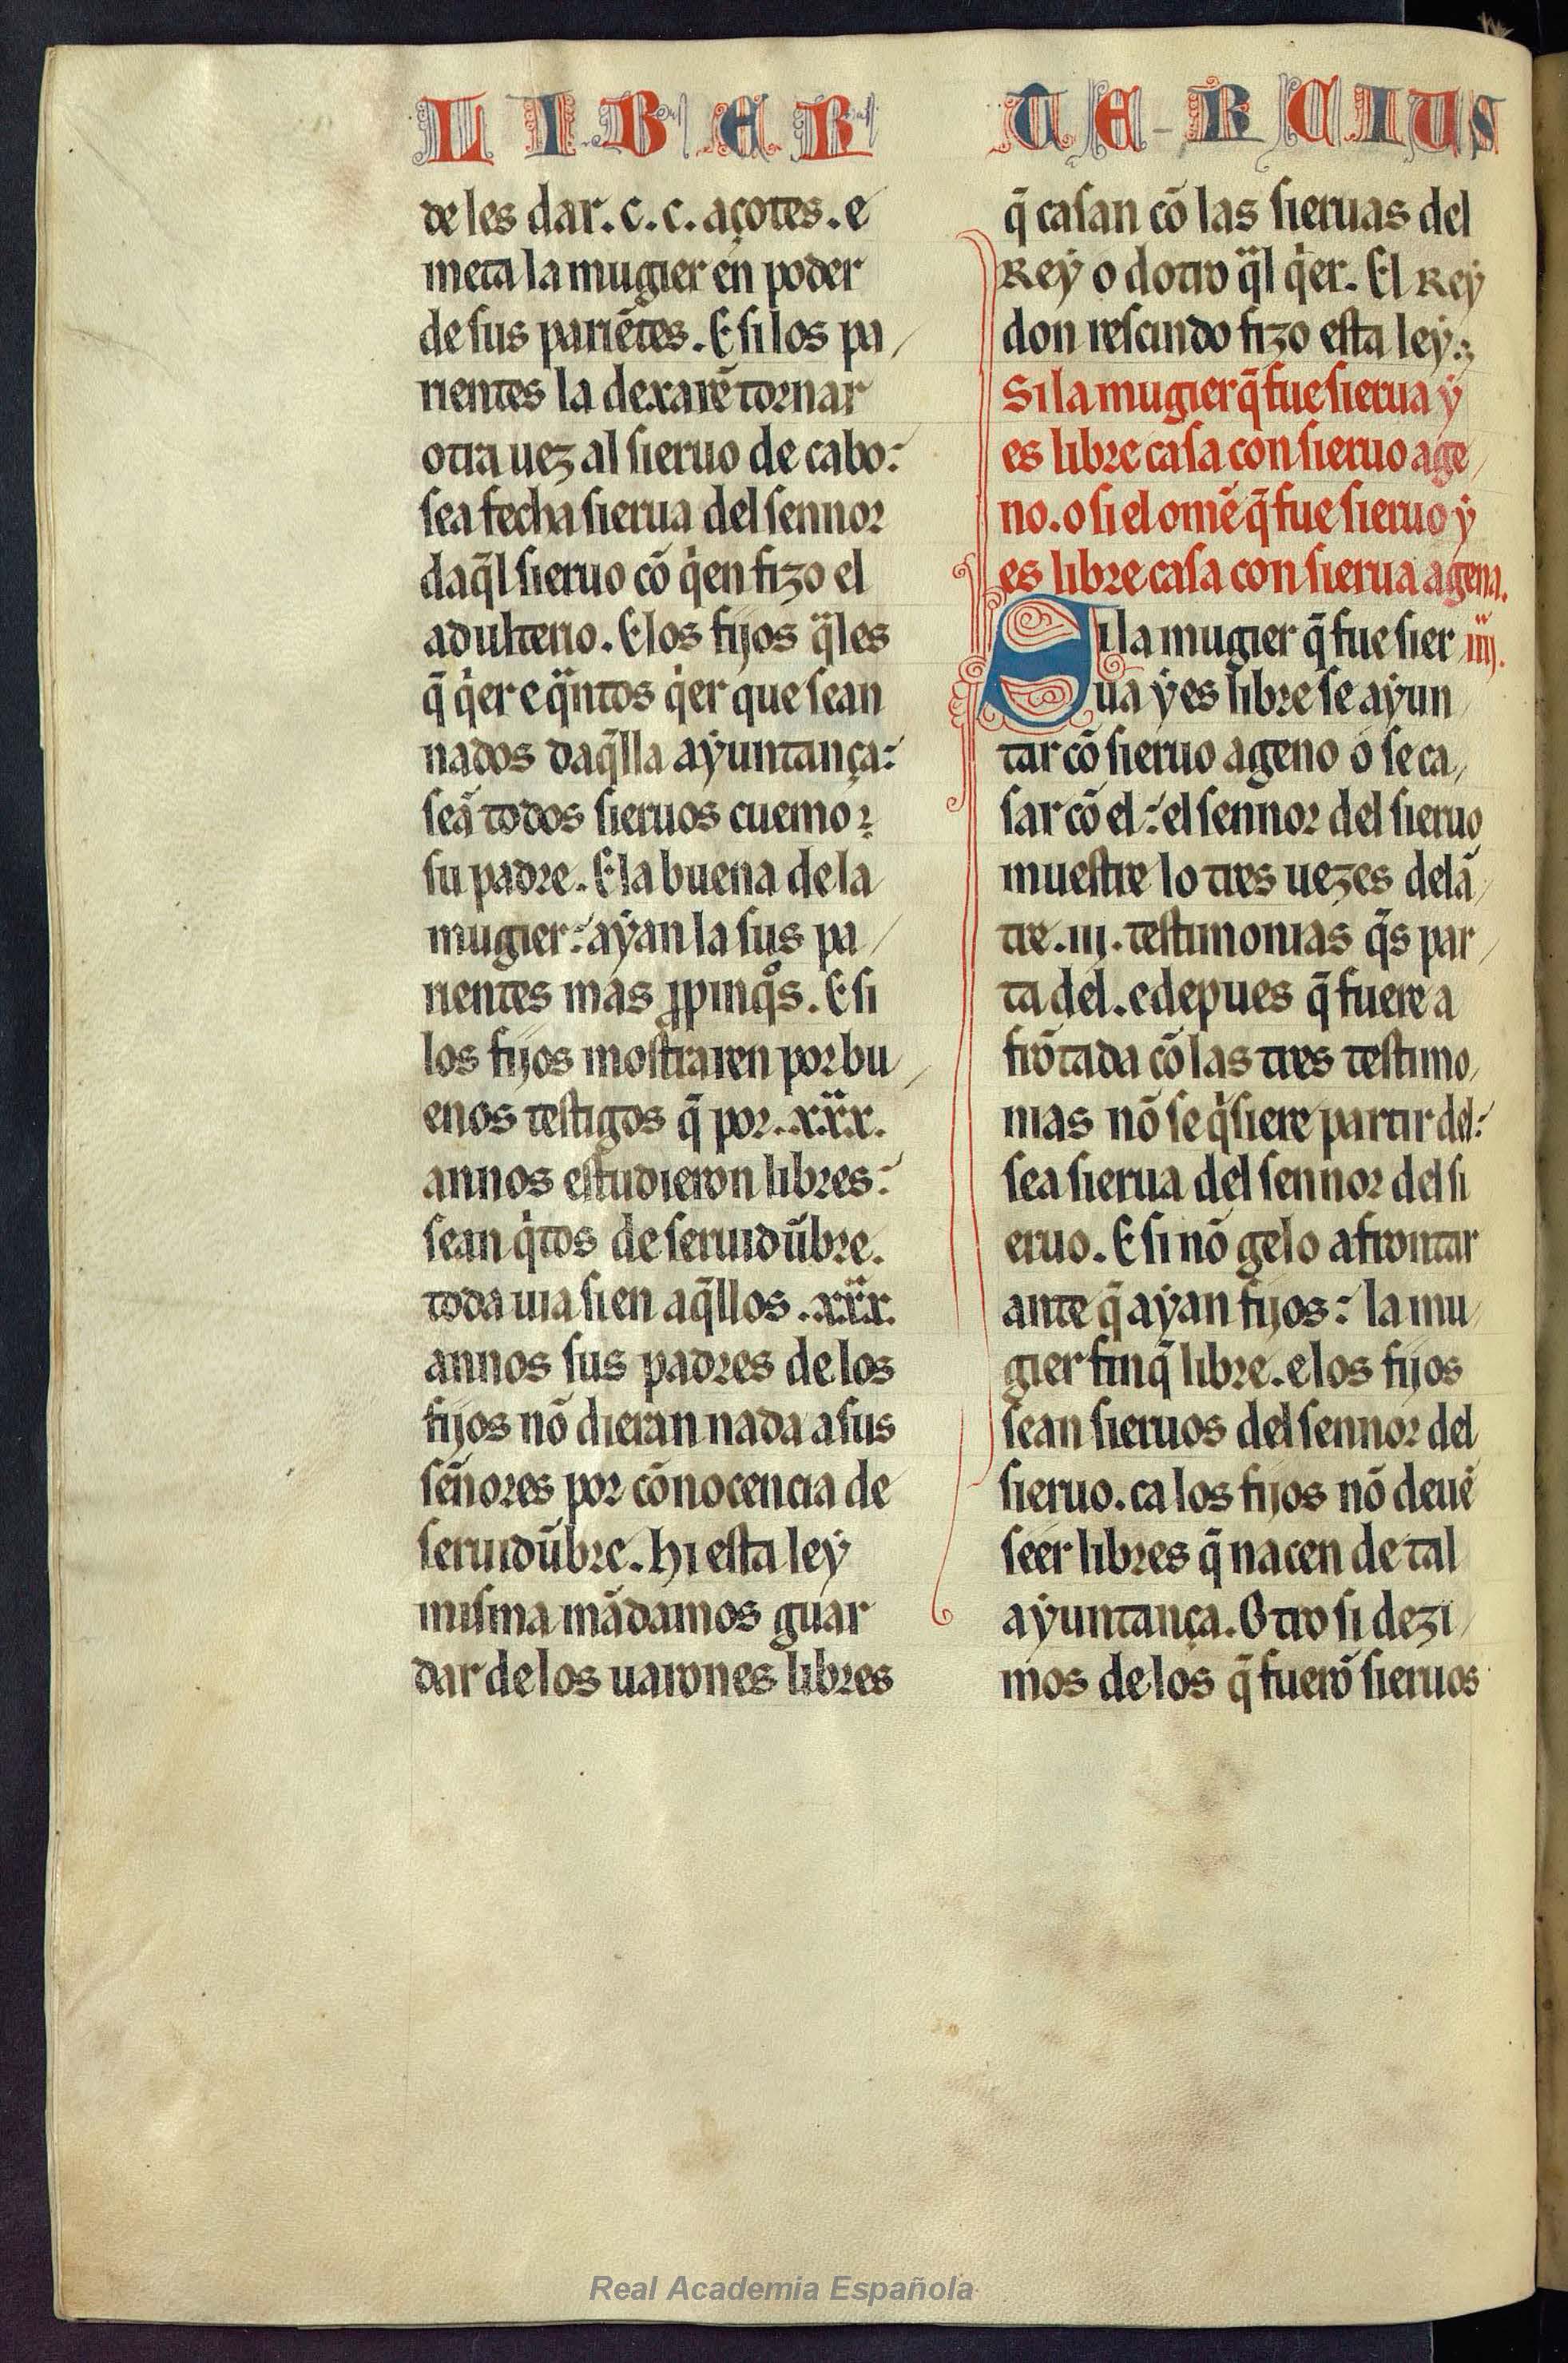 LIBER TERCIUS
de les dar .c.c. açotes. e
meta la mugier en poder
de sus pariẽtes. E si los pa/
rientes la dexarẽ tornar
otra uez al sieruo de cabo:
sea fecha sierua del sennor
daq̃l sieruo cõ q̍en fizo el
adulterio. E los fijos q̈les
q̃ q̍er e q̈ntos q̍er que sean
nados daq̃lla aẏuntança:
seã todos sieruos cuemo
su padre. E la buena de la
mugier: aẏan la sus pa/
rientes mas ꝓpinq̊s. E si
los fijos mostraren por bu/
enos testigos q̃ por .xxx.
annos estudieron libres:
sean q̍tos de seruidũbre.
toda uia si en aq̃llos .xxx.
annos sus padres de los
fijos nõ dieran nada a sus
señores por cõnocencia de
seruidũbre. hi esta leẏ
misma mãdamos guar
dar de los uarones libres
q̃ casan cõ las sieruas del
Reẏ o dotro q̈l q̍er. El Reẏ
don rescindo fizo esta leẏ.
Si la mugier q̃ fue sierua ẏ
es libre casa con sieruo age/
no. o si el omẽ q̃ fue sieruo ẏ
es libre casa con sierua agena.
Si la mugier q̃ fue sier iiij.
ua ẏ es libre se aẏun
tar cõ sieruo ageno o se ca/
sar cõ el: el sennor del sieruo
muestre lo tres uezes delã/
tre .iij. testimonias q̃s par/
ta del. e depues q̃ fuere a
frõtada cõ las tres testimo/
nias nõ se q̍siere partir del:
sea sierua del sennor del si
eruo. E si nõ gelo afrontar
ante q̃ aẏan fijos: la mu/
gier finq̃ libre. e los fijos
sean sieruos del sennor del
sieruo. ca los fijos nõ deuẽ
seer libres q̃ nacen de tal
aẏuntança. Otro si dezi/
mos de los q̃ fuerõ sieruos
Real Academia Española